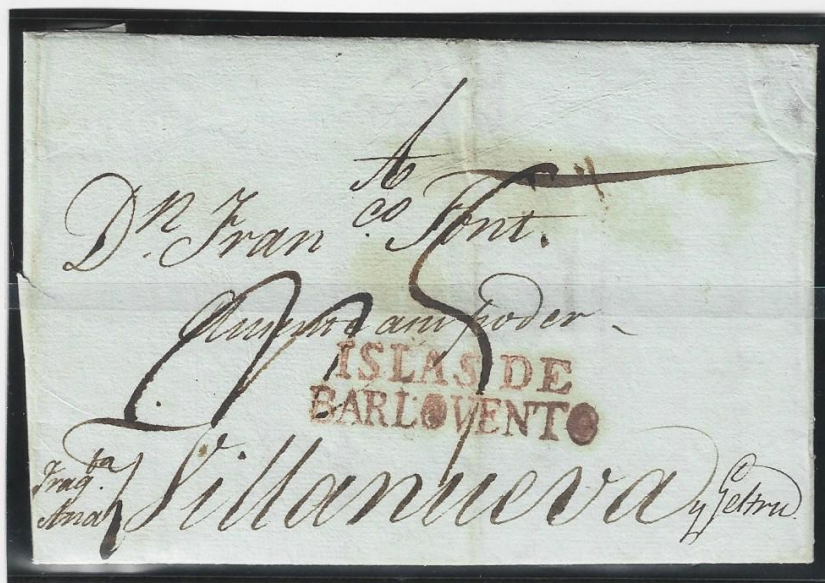 A
Dn. Franco. Font.
poder
ISLAS DE
BARLOVENTO
Fragta.
Ana
Villanueva y Geltru.